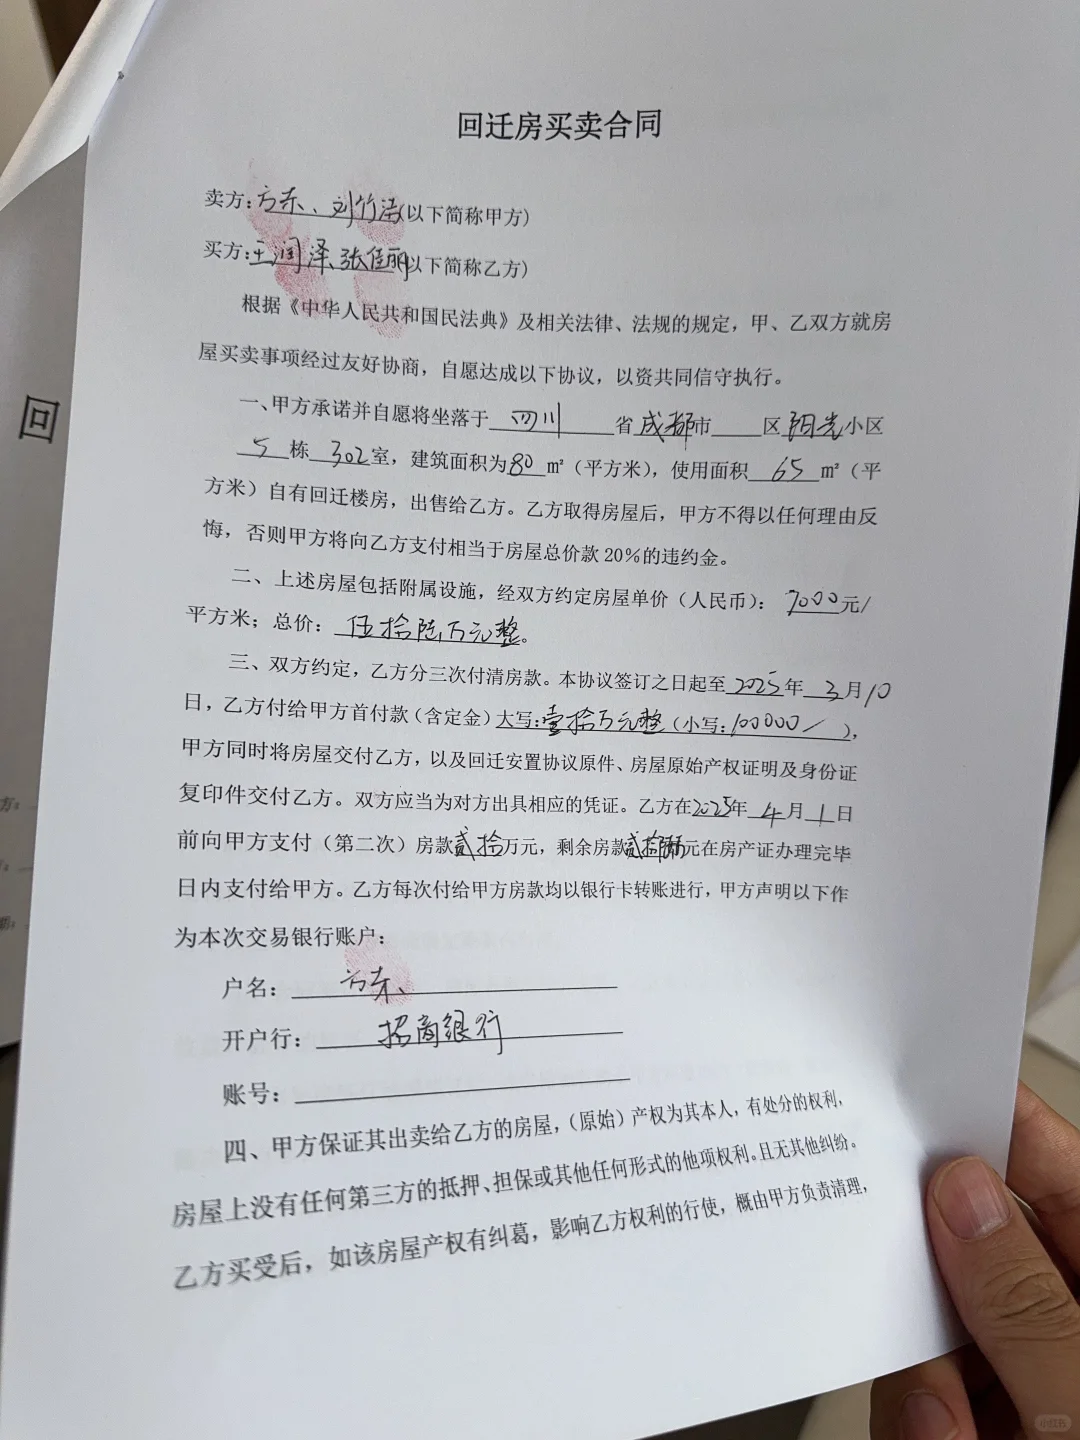 回迁房买卖合同
卖方：方东、刘竹洁（以下简称甲方）
买方：王润泽、张佳丽（以下简称乙方）
根据《中华人民共和国民法典》及相关法律、法规的规定，甲、乙双方就房
屋买卖事项经过友好协商，自愿达成以下协议，以资共同信守执行。
一、甲方承诺并自愿将坐落于 四川 省成都市 区阳光小区
5 栋 302 室，建筑面积为80 m²（平方米），使用面积 65 m²（平
方米）自有回迁楼房，出售给乙方。乙方取得房屋后，甲方不得以任何理由反
悔，否则甲方将向乙方支付相当于房屋总价款 20%的违约金。
二、上述房屋包括附属设施，经双方约定房屋单价（人民币）：7000元/
平方米；总价：伍拾陆万元整。
三、双方约定，乙方分三次付清房款。本协议签订之日起至2025年 3 月10
日，乙方付给甲方首付款（含定金）大写：壹拾万元整（小写：100000/ ），
甲方同时将房屋交付乙方，以及回迁安置协议原件、房屋原始产权证明及身份证
复印件交付乙方。双方应当为对方出具相应的凭证。乙方在2025年 4 月 1 日
前向甲方支付（第二次）房款贰拾万元，剩余房款贰拾 元在房产证办理完毕
日内支付给甲方。乙方每次付给甲方房款均以银行卡转账进行，甲方声明以下作
为本次交易银行账户：
户名：方东
开户行：招商银行
账号：
四、甲方保证其出卖给乙方的房屋，（原始）产权为其本人，有处分的权利，
房屋上没有任何第三方的抵押、担保或其他任何形式的他项权利。且无其他纠纷。
乙方买受后，如该房屋产权有纠葛，影响乙方权利的行使，概由甲方负责清理，
回
方：
小红书